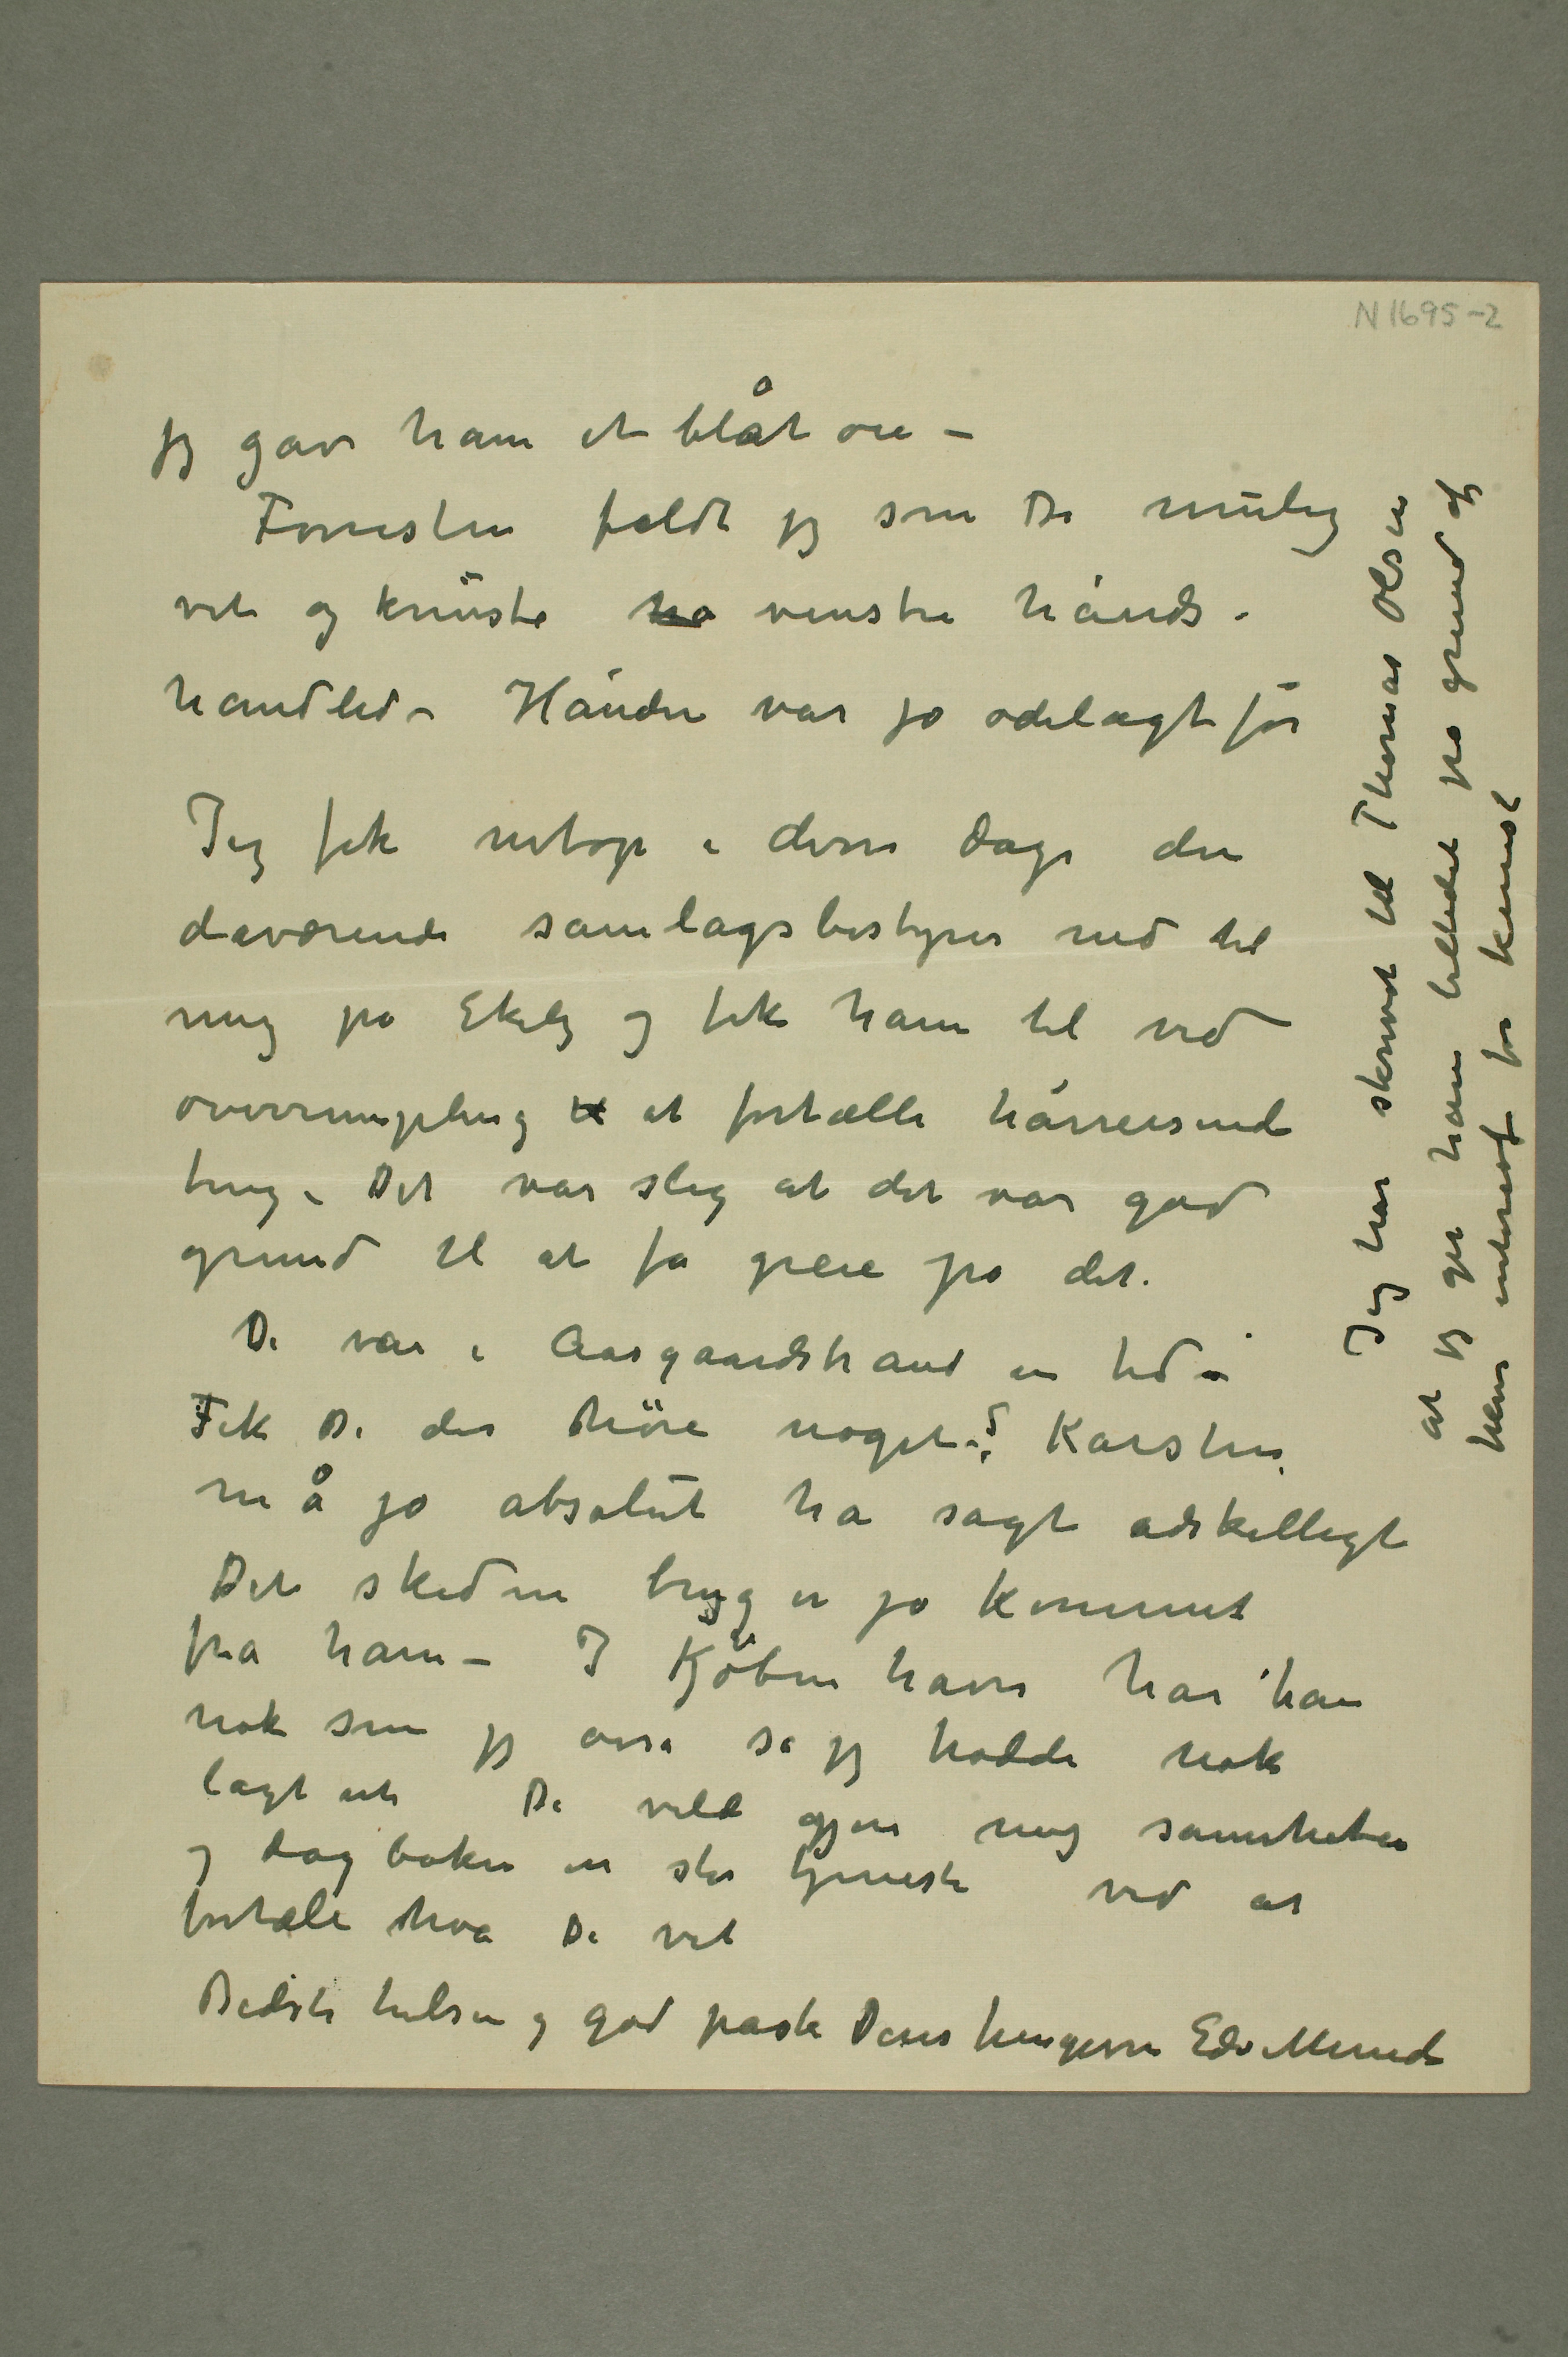 N 1695-2
jeg gav ham et blåt øie –
Forresten faldt jeg som De mulig
vet og knuste ha venstre hånds-
handled – Hånden var jo ødelagt før
Jeg fik netop i disse dage den
daværende samlagsbestyrer ned til
mig på Ekely og fik ham til ved
overrumpling til at fortælle hårreisende
ting – Det var slig at det var god
grund til at få greie på det.
De var i Aasgaardstrand en tid –
Fik De der høre noget? Karsten
må jo absolut ha sagt adskilligt
Det skedne
 er jo kommet
fra ham – I Kjøbenhavn har han
nok som jeg også sa jeg hadde nok
lagt ut De vilde gjøre mig sannheten
og dagboken en stor tjeneste ved at
fortælle hva De vet
Bedste hilsen og god påske Deres hengivne Edv Munch
Jeg har skrevet til Thomas Olsen
at jeg gir ham billedet på grund af
hans interesse for kunst